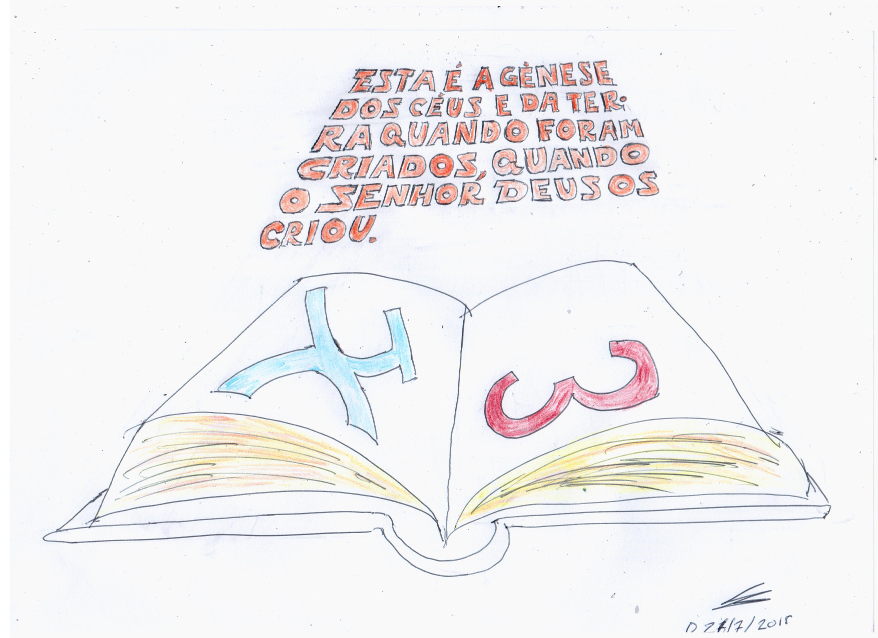 ESTA É A GÊNESE
DOS CÉUS E DA TER-
RA QUANDO FORAM
CRIADOS, QUANDO
O SENHOR DEUS OS
CRIOU.
ω